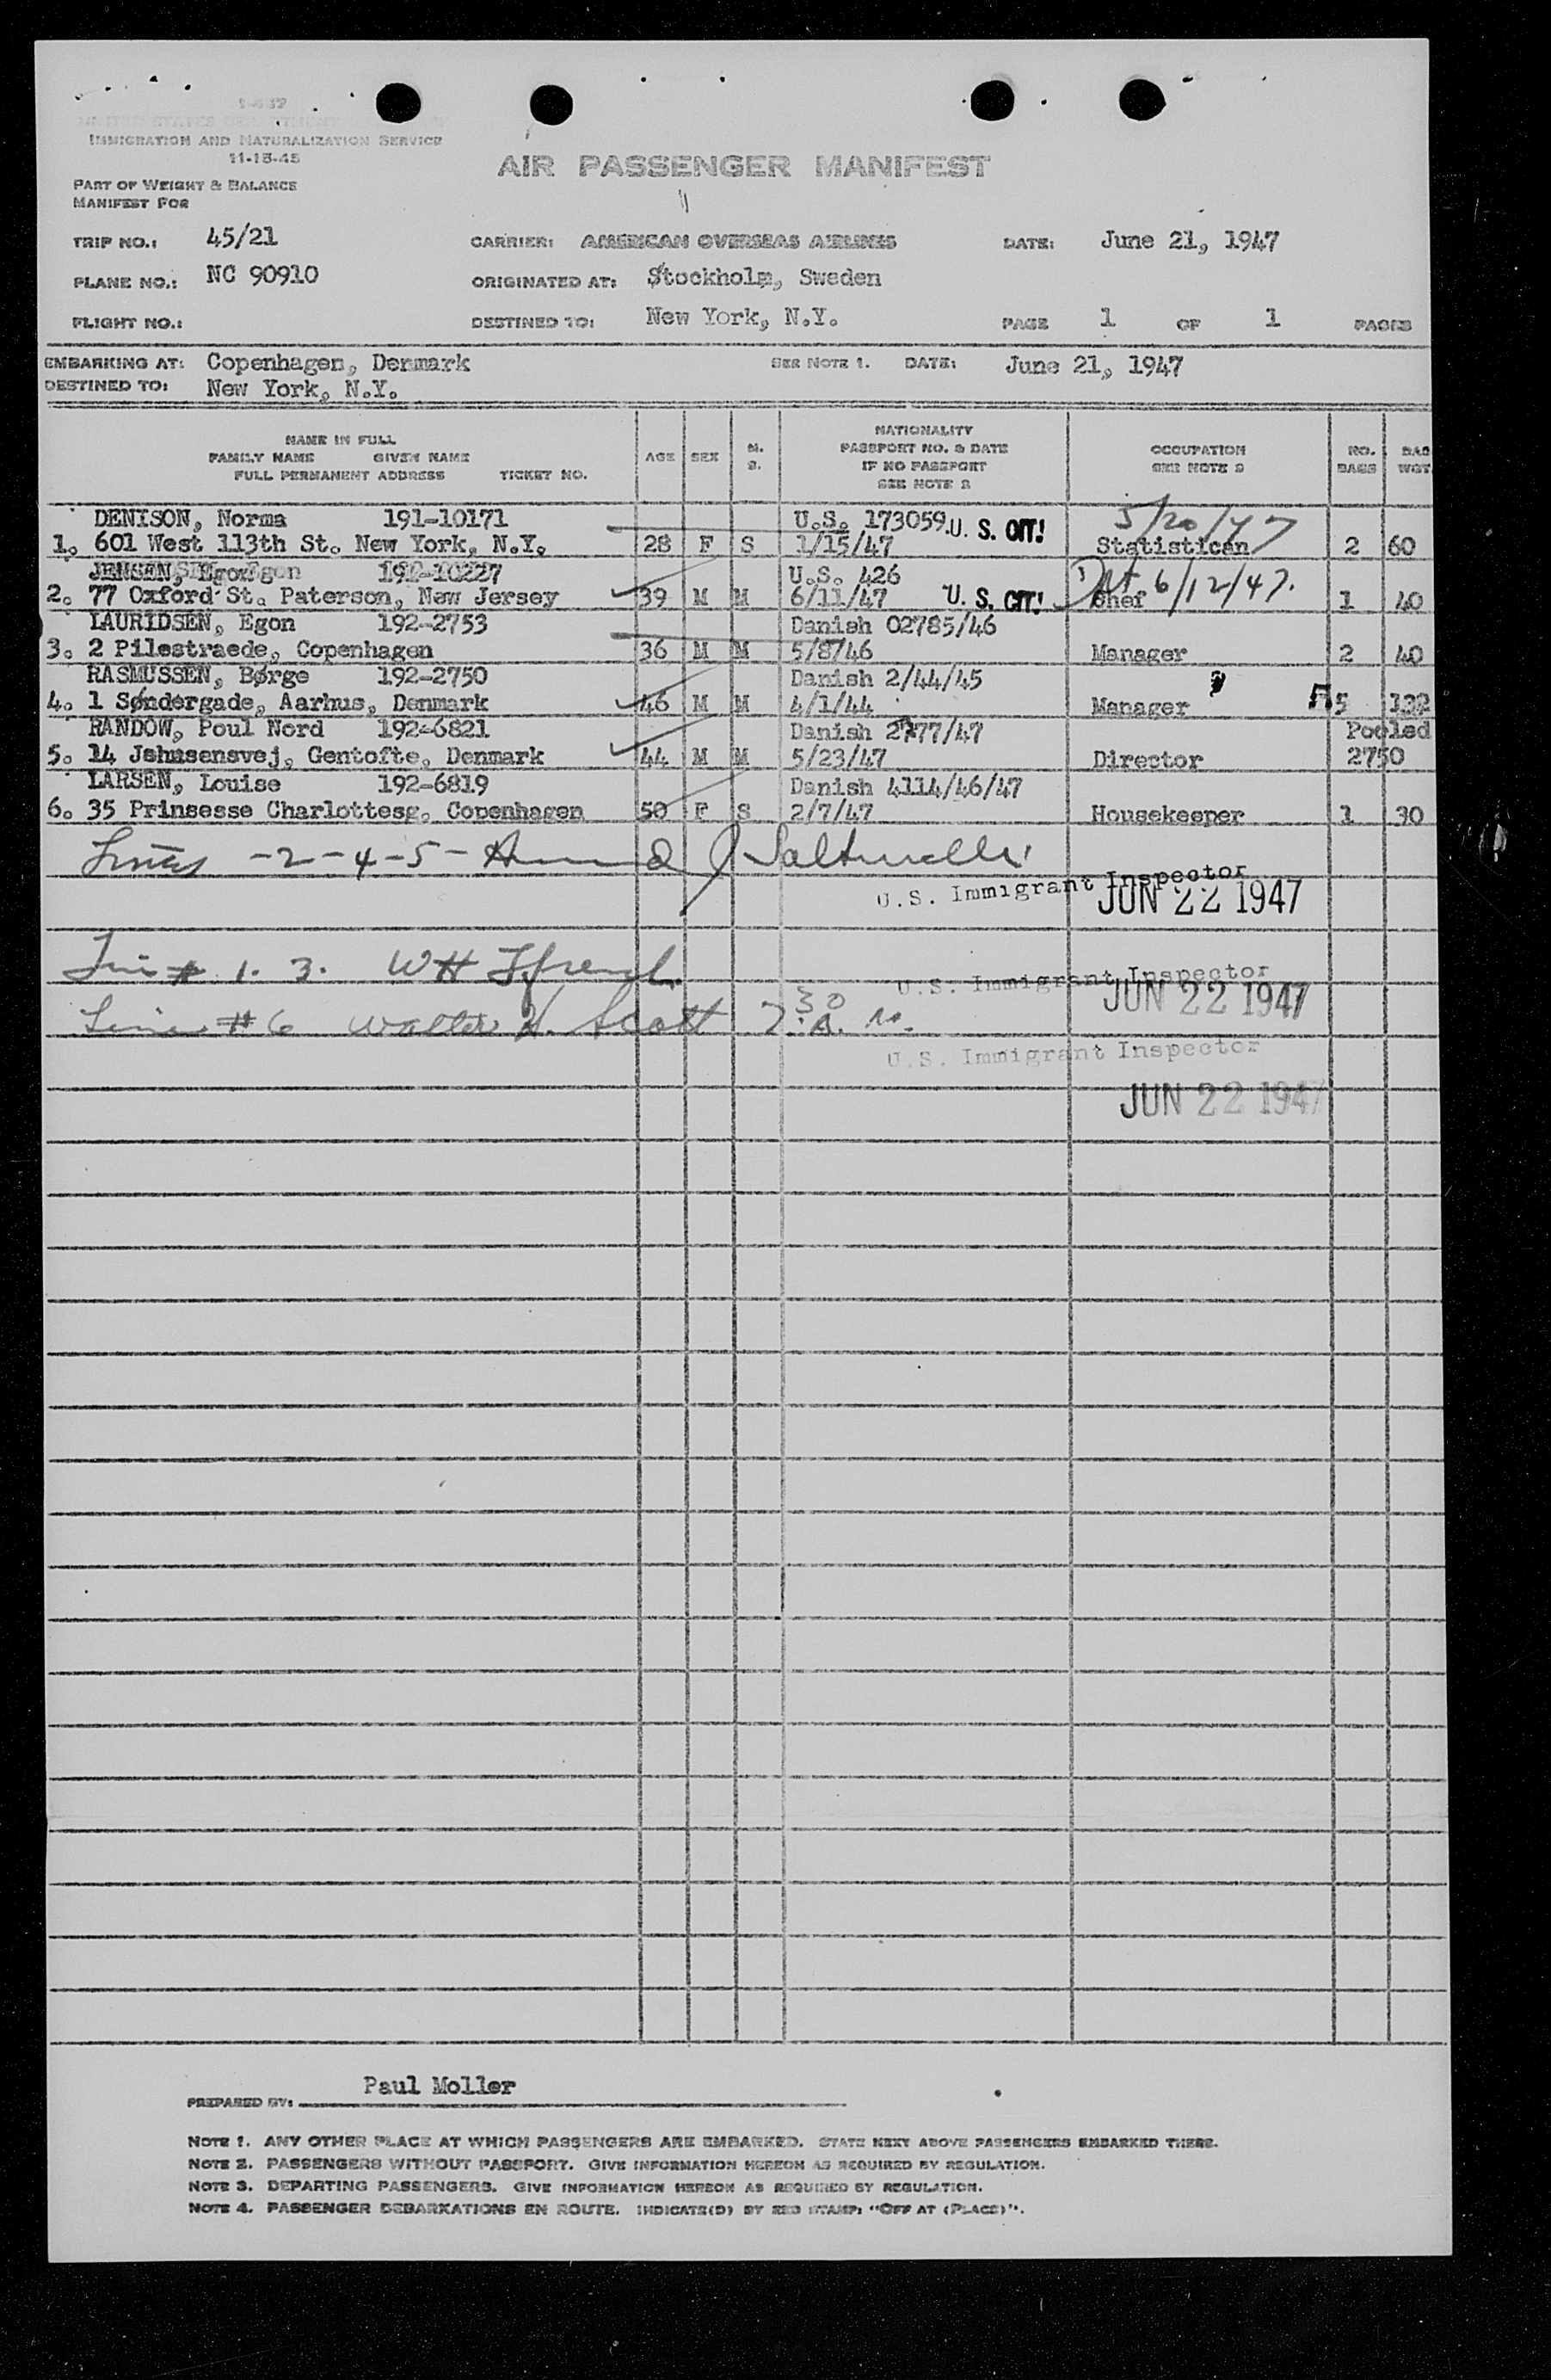 IMMIGRATION AND NATURALIZATION SERVICE
11-15-45
AIR PASSENGER MANIFEST
PART OF WEIGHT & BALANCE
MANIFEST FOR
TRIP NO.: 45/21 CARRIER: AMERICAN OVERSEAS AIRLINES DATE: June 21, 1947
PLANE NO.: NC 90910 ORIGINATED AT: Stockholm, Sweden
FLIGHT NO.: DESTINED TO: New York, N.Y. PAGE 1 OF 1 PAGES
EMBARKING AT: Copenhagen, Denmark SEE NOTE 1. DATE: June 21, 1947
DESTINED TO: New York, N.Y.
NAME IN FULL
FAMILY NAME GIVEN NAME
FULL PERMANENT ADDRESS TICKET NO.
AGE SEX M. S.
NATIONALITY
PASSPORT NO. & DATE
IF NO PASSPORT
SEE NOTE 2
OCCUPATION
SEE NOTE 3
NO. BAGS
BAG WGT
DENISON, Norma 191-10171 U.S. 173059 U. S. CIT! 5/20/47
1. 601 West 113th St. New York, N.Y. 28 F S 1/15/47 Statistican 2 60
JENSEN, Egon 192-10227 U.S. 426
2. 77 Oxford St. Paterson, New Jersey 39 M M 6/11/47 U. S. CIT! Chef 6/12/47. 1 40
LAURIDSEN, Egon 192-2753 Danish 02785/46
3. 2 Pilestraede, Copenhagen 36 M M 5/8/46 Manager 2 40
RASMUSSEN, Børge 192-2750 Danish 2/44/45
4. 1 Søndergade, Aarhus, Denmark 46 M M 4/1/44 Manager 5 132
RANDOW, Poul Nord 192-6821 Danish 2777/47 Pooled
5. 14 Jshusensvej, Gentofte, Denmark 44 M M 5/23/47 Director 2750
LARSEN, Louise 192-6819 Danish 4114/46/47
6. 35 Prinsesse Charlottesg. Copenhagen 50 F S 2/7/47 Housekeeper 1 30
Lines -2-4-5-
U.S. Immigrant Inspector
JUN 22 1947
Line # 1. 3. WH
U.S. Immigrant Inspector
JUN 22 1947
Line #6 Walter H. Scott 7:30 A. M.
U.S. Immigrant Inspector
JUN 22 1947
Paul Moller
PREPARED BY:
NOTE 1. ANY OTHER PLACE AT WHICH PASSENGERS ARE EMBARKED. STATE NEXT ABOVE PASSENGERS EMBARKED THERE.
NOTE 2. PASSENGERS WITHOUT PASSPORT. GIVE INFORMATION HEREON AS REQUIRED BY REGULATION.
NOTE 3. DEPARTING PASSENGERS. GIVE INFORMATION HEREON AS REQUIRED BY REGULATION.
NOTE 4. PASSENGER DEBARKATIONS EN ROUTE. INDICATE(D) BY RED STAMP: "OFF AT (PLACE)".